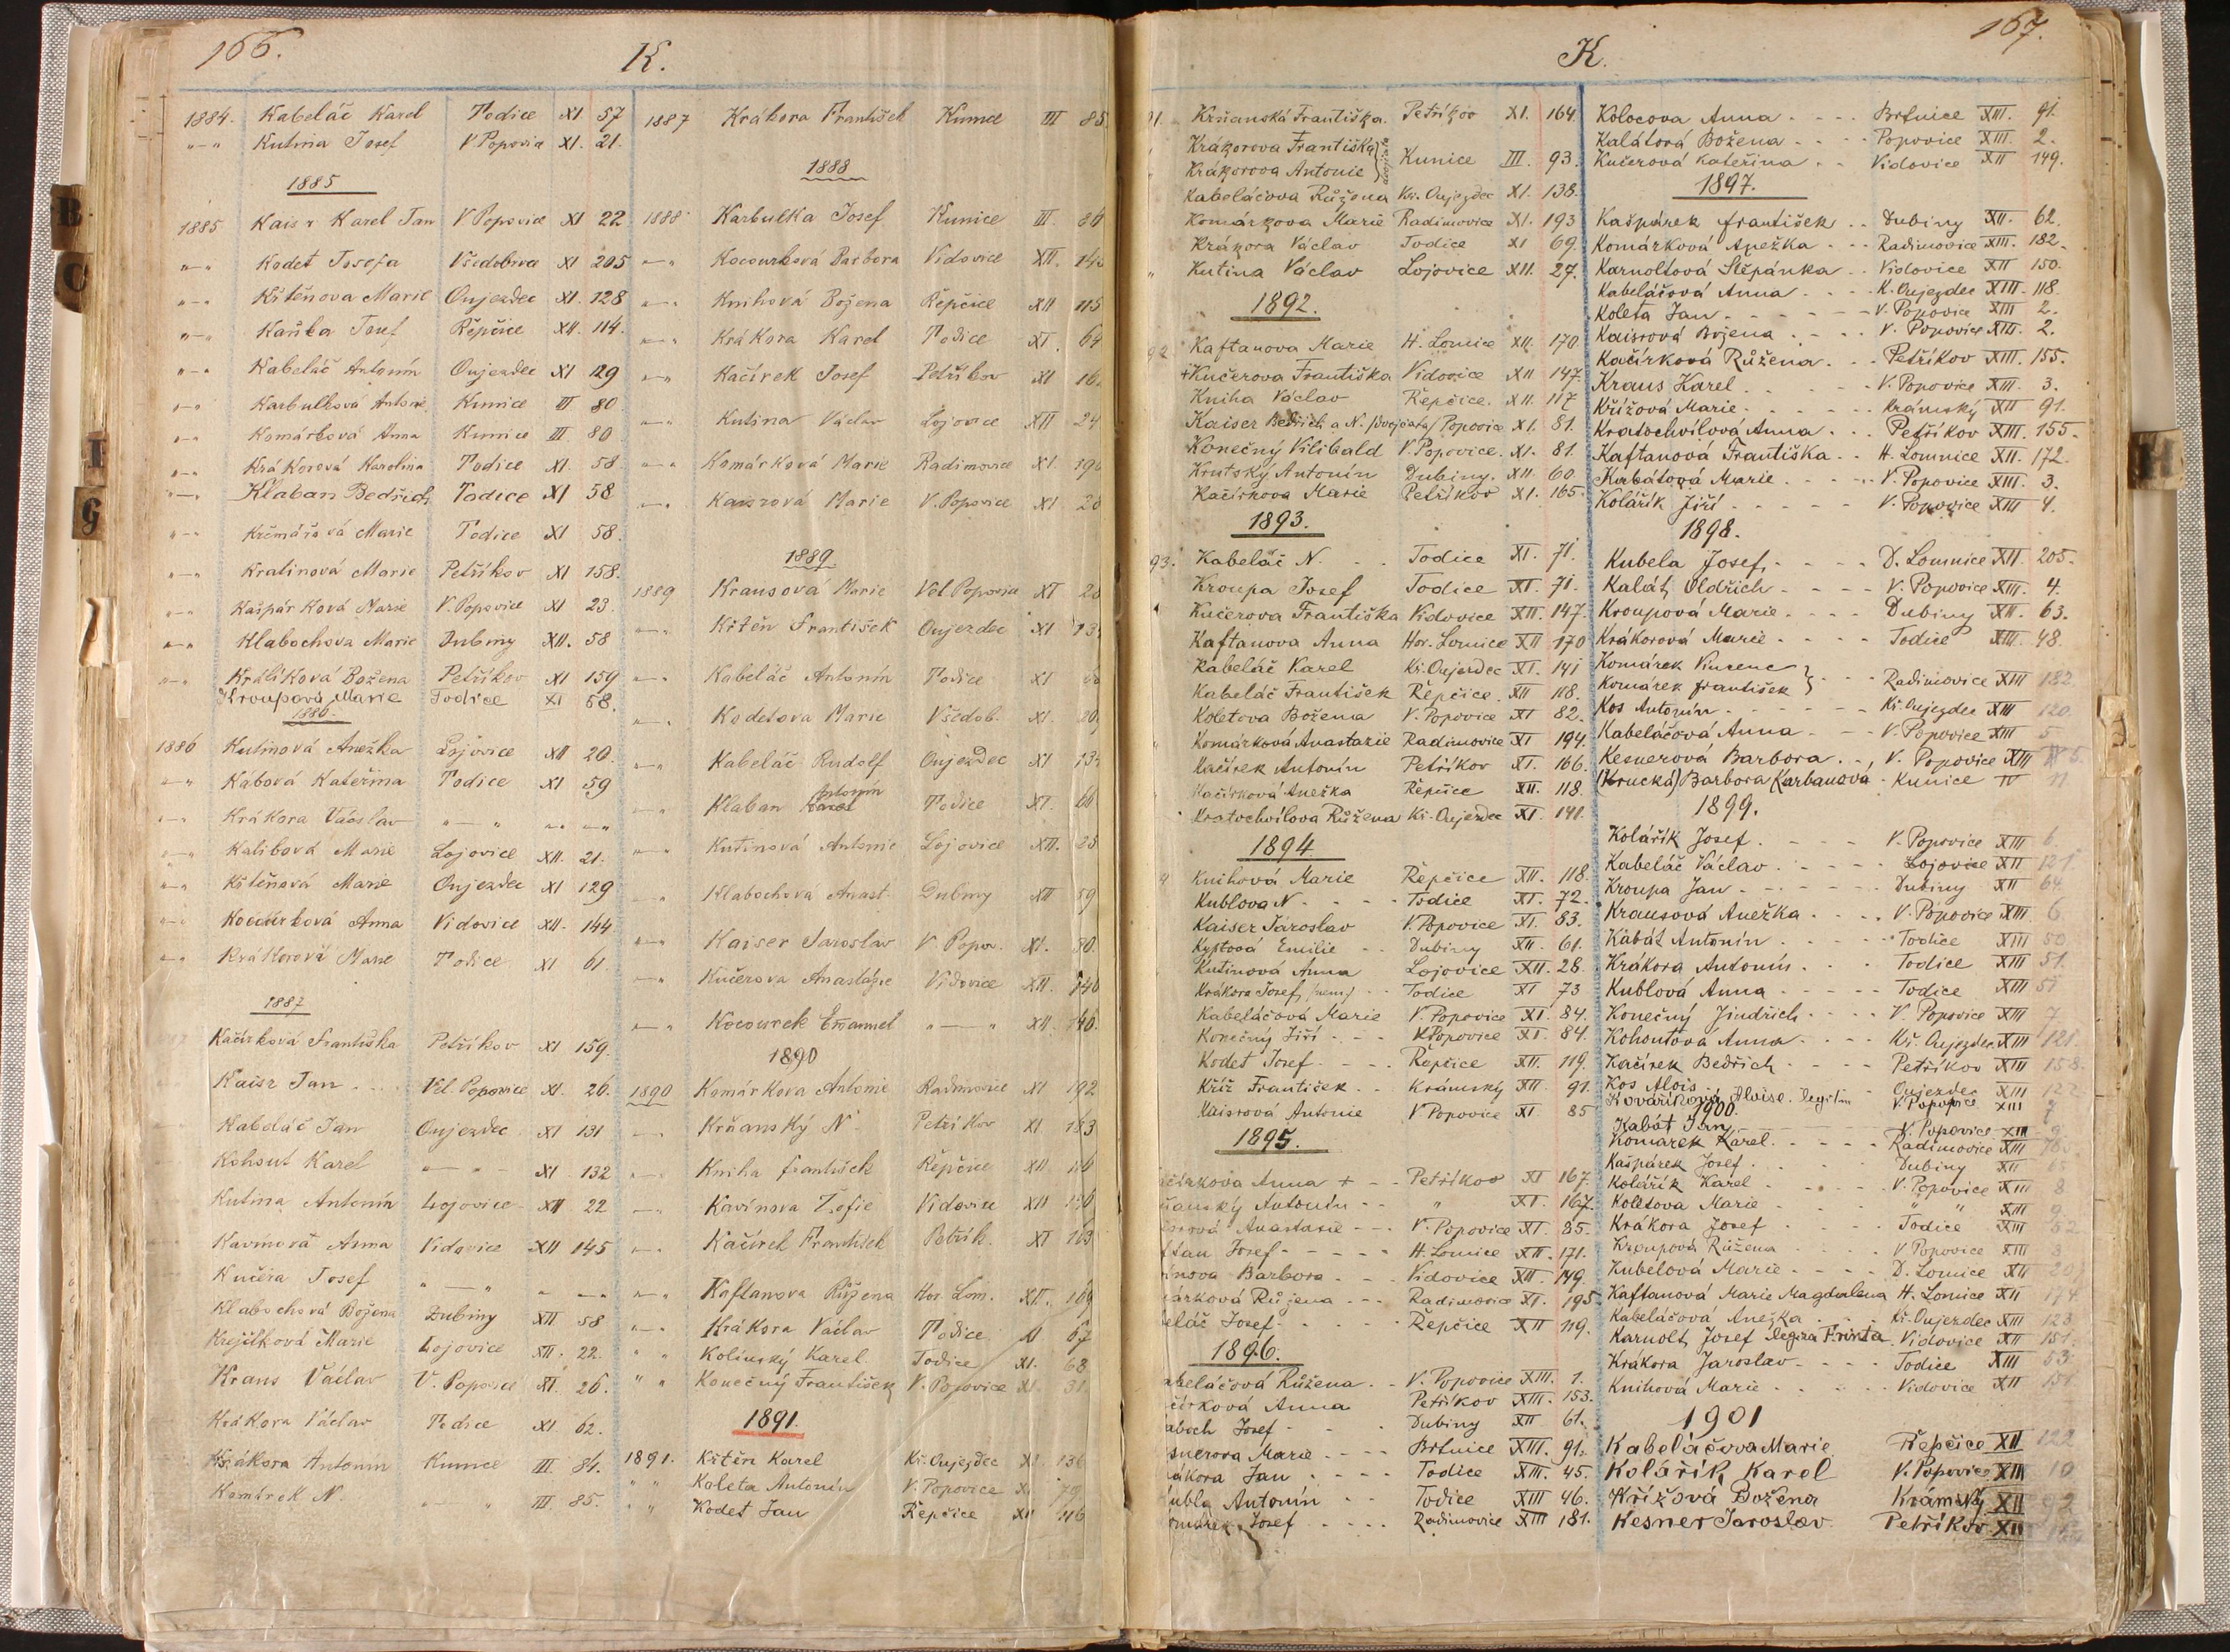 166.
K.
1884. Kabeláč Karel Todice XI 57
"-" Kutina Josef V Popovice XI. 21.
1885
1885 Kaisr Karel Jan V. Popovice XI 22
"-" Kodet Josefa Všedobrovice XI 205
"-" Křtěnova Marie Oujezdec XI. 128
"-" Karika Josef Řepčice XII. 114.
"-" Kabeláč Antonín Oujezdec XI 129
"-" Karbulková Antonie Kunice III 80
"-" Komárková Anna Kunice III. 80
"-" Krákorová Karolina Todice XI. 58
"-" Klaban Bedřich Todice XI 58
"-" Krčmářová Marie Todice XI 58.
"-" Kratinová Marie Petříkov XI 158.
"-" Kašpárková Marie V. Popovice XI 23.
"-" Klabochova Marie Dubiny XII. 58
"-" Králíková Božena Petříkov XI 159
Kroupová Marie Todice XI 58.
1886.
1886 Kutinová Anežka Lojovice XII 20.
"-" Kábová Kateřina Todice XI 59
"-" Krákora Václav "-" "-" "-"
"-" Kalibová Marie Lojovice XII. 21.
"-" Křtěnová Marie Oujezdec XI 129
"-" Kocourková Anna Vidovice XII. 144
"-" Krákorová Marie Todice XI 61.
1887
Kačírková Františka Petříkov XI 159.
Kaisr Jan Vel. Popovice XI. 26.
Kabeláč Jan Oujezdec XI 131
Kohout Karel "-" XI 132
Kutina Antonín Lojovice XII 22
Kavinová Anna Vidovice XII 145
Kučera Josef "-" " "-"
Klabochová Božena Dubiny XII 58
Krejčíková Marie Lojovice XII. 22.
Kraus Václav V. Popovice XI. 26.
Krákora Václav Todice XI 62.
Krákora Antonín Kunice III. 84.
Komárek N. "-" III. 85.
1887 Krákora František Kunice III 85.
1888
1888 Karbulka Josef Kunice III. 86
"-" Kocourková Barbora Vidovice XII.
"-" Knihová Božena Řepčice XII 115
"-" Krákora Karel Todice XI. 64
"-" Kačírek Josef Petříkov XI
"-" Kutina Václav Lojovice XII 24
"-" Komárková Marie Radimovice XI. 190
"-" Kaisrová Marie V. Popovice XI
1889
1889 Krausová Marie Vel. Popovice XI
"-" Křtěn František Oujezdec XI
"-" Kabeláč Antonín Todice XI
"-" Kodetova Marie Všedob. XI.
"-" Kabeláč Rudolf Oujezdec XI
"-" Klaban Karel Antonín Todice XI. 66
"-" Kutinová Antonie Lojovice XII. 25
"-" Klabochová Anast. Dubiny XII 59
"-" Kaiser Jaroslav V Popov. XI. 30.
"-" Kučerova Anastázie Vidovice XII. 146
"-" Kocourek Emanuel "-" XII. 146.
1890
1890 Komárkova Antonie Radimovice XI 192
"-" Krňanský N. Petříkov XI 163
"-" Kniha František Řepčice XII 116
"-" Kavinova Žofie Vidovice XII 146
"-" Kačírek František Petřík. XI 163
"-" Kaftanova Růžena Hor. Lom. XII. 169
"-" Krákora Václav Todice XI 67
" " Kolínský Karel. Todice XI. 68
" " Konečný František V. Popovice XI. 31.
1891.
1891. Křtěn Karel Kř. Oujezdec XI. 136
" " Koleta Antonín V. Popovice XI 79
" " Kodet Jan Řepčice XII 116
167.
K.
91. Krňanská Františka. Petříkov XI. 164.
Krákorova Františka
Krákorova Antonie } dvojčata Kunice III. 93.
Kabeláčova Růžena Kř. Oujezdec XI. 138.
Komárkova Marie Radimovice XI. 193
Krákora Václav Todice XI 69.
" Kutina Václav Lojovice XII. 27.
1892.
92 Kaftanova Marie H. Lomice XII. 170
+Kučerova Františka Vidovice XII 147.
Kniha Václav Řepčice. XII. 117
Kaiser Bedřich a N. (dvojčata) Popovice XI. 81.
Konečný Vilibald V. Popovice. XI. 81.
Krutský Antonín Dubiny. XII. 60
Kačírkova Marie Petříkov XI. 165.
1893.
93. Kabeláč N. Todice XI. 71.
Kroupa Josef Todice XI. 71.
Kučerova Františka Vidovice XII. 147.
Kaftanova Anna Hor. Lomice XII 170
Kabeláč Karel Kř. Oujezdec XI. 141
Kabeláč František Řepčice. XII 118.
Koletova Božena V. Popovice XI 82.
Komárková Anastazie Radimovice XI 194.
Kačírek Antonín Petříkov XI. 166.
Kačírková Anežka Řepčice XII. 118.
Kratochvílova Růžena Kř. Oujezdec XI. 141.
1894
4 Knihová Marie Řepčice XII. 118
Kublova N Todice XI. 72.
Kaiser Jaroslav V. Popovice XI. 83.
Kystová Emilie Dubiny XII. 61.
Kutinová Anna Lojovice XII. 28.
Krákora Josef (nem.) Todice XI 73
Kabeláčová Marie V. Popovice XI. 84.
Konečný Jiří V. Popovice XI. 84.
Kodet Josef Řepčice XII. 119.
Kříž František Krámský XII. 91.
Kaisrová Antonie V Popovice XI. 85
1895.
čírkova Anna + Petříkov XI 167.
ňanský Antonín " XI. 167.
srová Anastasie V. Popovice XI. 85.
ftan Josef H. Lomice XII. 171.
inova Barbora Vidovice XII. 149.
árková Růžena Radimovice XI. 195
eláč Josef Řepčice XII 119.
1896.
abeláčová Růžena V. Popovice XIII. 1.
čírková Anna Petříkov XIII. 153.
aboch Josef Dubiny XII 61.
snerova Marie Brtnice XIII. 91.
ákora Jan Todice XIII. 45.
ubla Antonín Todice XIII 46.
omárek Josef Radimovice XIII 181.
Kolocova Anna Brtnice XIII. 91.
Kalátová Božena Popovice XIII 2.
Kučerová Kateřina Vidovice XII 149.
1897.
Kašpárek František Dubiny XII. 62.
Komárková Anežka Radimovice XIII. 182.
Karnoltová Štěpánka Vidovice XII 150.
Kabeláčová Anna K. Oujezdec XIII. 118.
Koleta Jan V. Popovice XIII 2.
Kaisrová Božena V. Popovice XIII. 2.
Kačírková Růžena Petříkov XIII. 155.
Kraus Karel V. Popovice XIII. 3.
Křížová Marie Krámský XII 91.
Kratochvilová Anna Petříkov XIII. 155.
Kaftanová Františka H. Lomnice XII. 172.
Karbátová Marie V. Popovice XIII. 3.
Kolářík Jiří V. Popovice XIII 4.
1898.
Kubela Josef, D. Lomnice XII. 205.
Kalát, Oldřich V. Popovice XIII. 4.
Kroupová Marie Dubiny XII. 63.
Krákorová Marie Todice XIII. 48.
Komárek Vincenc
Komárek František } Radimovice XIII 182
Kos Antonín Kř. Oujezdec XIII 120.
Kabeláčová Anna V. Popovice XIII 5
Kesnerová Barbora V. Popovice XIII 5.
(Krucká) Barbora Karbanova Kunice IV 11
1899.
Kolářík Josef V. Popovice XIII 6.
Kabeláč Václav Lojovice XII 121
Kroupa Jan Dubiny XII 64.
Krausová Anežka V. Popovice XIII. 6
Kabát Antonín Todice XIII 50
Krákora Antonín Todice XIII 51.
Kublová Anna Todice XIII 51
Konečný Jindřich V. Popovice XIII 7
Kohoutova Anna Kř. Oujezdec XIII 121.
Kačírek Bedřich Petříkov XIII 158.
Kos Alois Oujezdec XIII 122
Kovaříková Aloise. legitim V. Popovice XIII 7
1900.
Kabát Jan V. Popovice XIII 9
Komarek Karel Radimovice XIII
Kašpárek Josef Dubiny XII 65
Kolářík Karel V. Popovice XIII 8
Koletova Marie " " XIII 9.
Krákora Josef Todice XIII 52
Kroupová Růžena V Popovice XIII 3
Kubelová Marie D. Lomice XII
Kaftanová Marie Magdalena H. Lomice XII 174
Kabeláčová Anežka Kř. Oujezdec XIII 123
Karnolt, Josef legit. Vidovice XII 151.
Krákora Jaroslav Todice XIII 53.
Knihová Marie Vidovice XII 151
1901
Kabeláčova Marie Řepčice XII 122
Kolářík, Karel V. Popovice XIII 10
Křížová Božena Krámský XII 92
Kesner Jaroslav Petříkov XIII
B
C
I
G
H